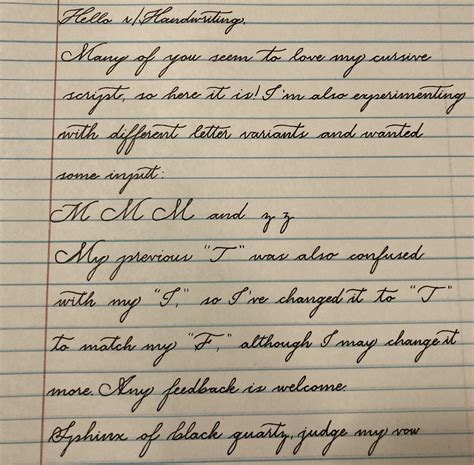 Hello r/Handwriting,
Many of you seem to love my cursive
script, so here it is! I'm also experimenting
with different letter variants and wanted
some input:
M M M and z z
My previous "T" was also confused
with my "I," so I've changed it to "T"
to match my "F," although I may change it
more. Any feedback is welcome.
Sphinx of black quartz, judge my vow